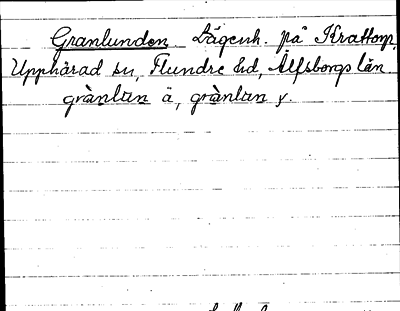 Granlunden. Lägenh. på Krattorp,
Upphärad sn, Flundre hd, Älfsborgs län
grànlun ä, grànlun y.